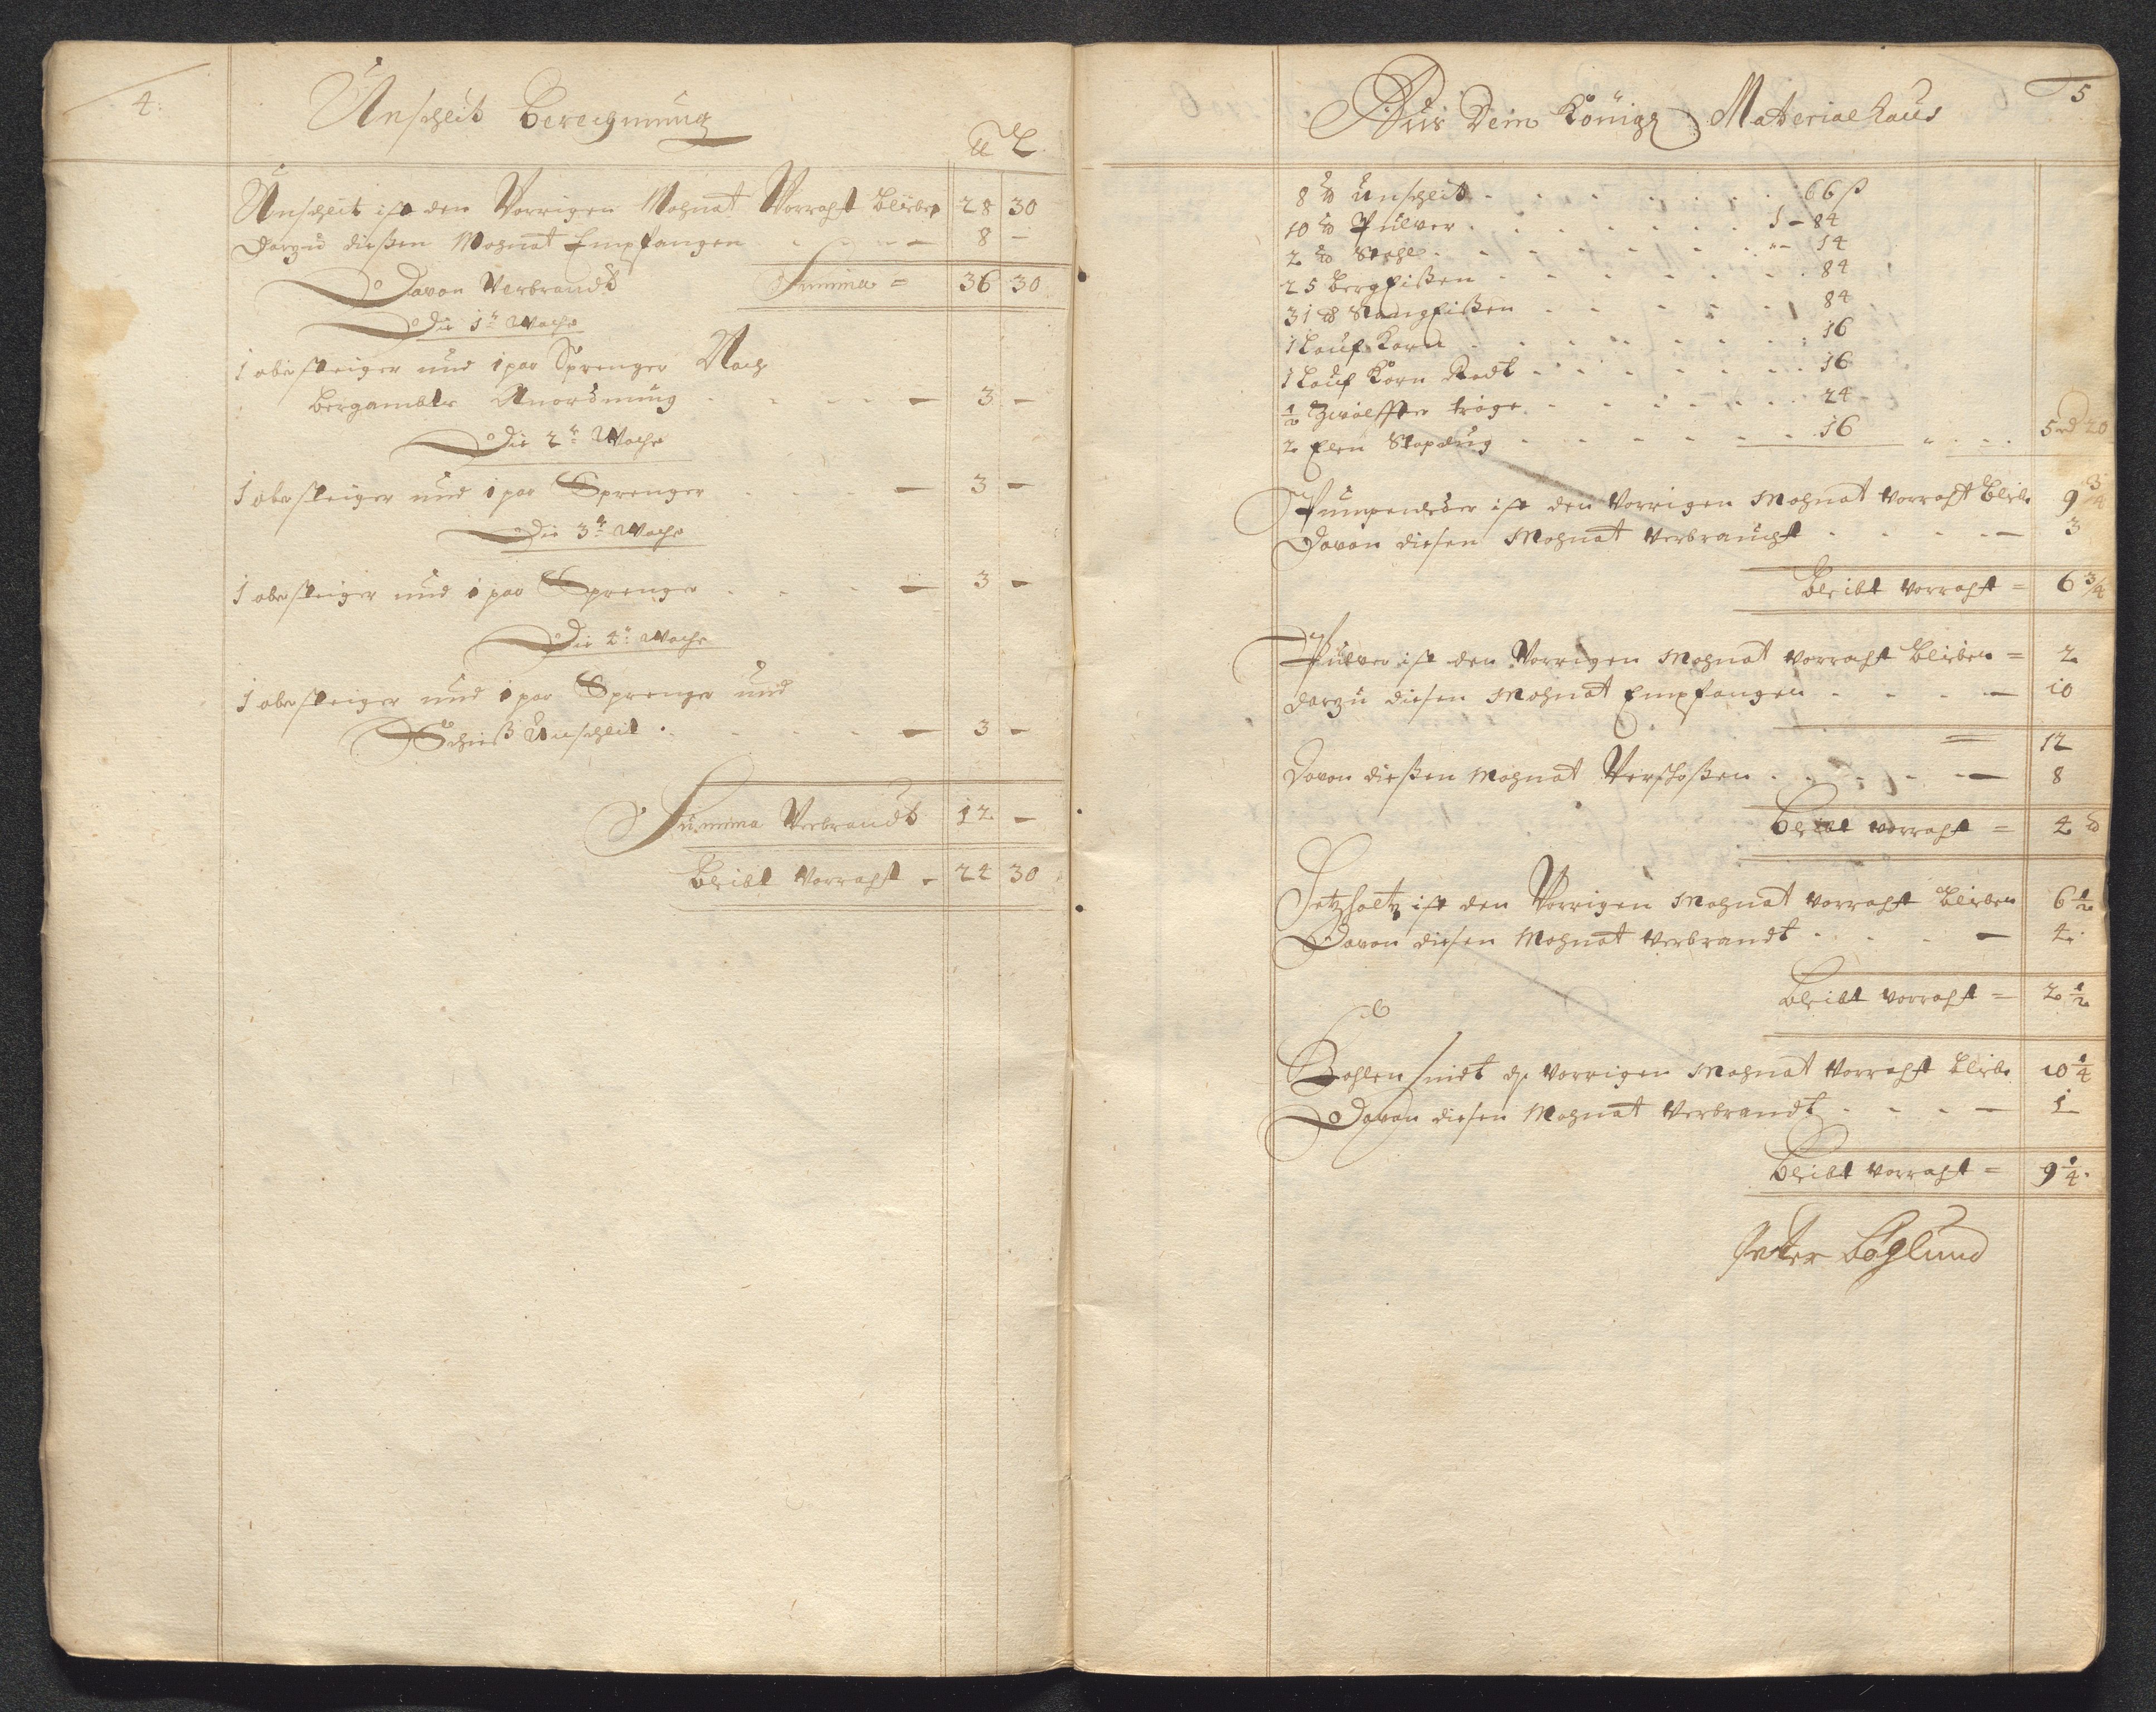 4:
Unschlit Berechnung
℔ L
Unschlit ist den Vorrigen Mohnat Vorraht blieben 28 30
Darzu dießen Mohnat Empfangen - 8 -
Davon Verbrandt Summa = 36 30
Die 1te Woche
1 obersteiger und 1 par Sprenger Nach
Bergambts Anordnung - 3 -
Die 2te Woche
1 obersteiger und 1 par Sprenger - 3 -
Die 3te Woche
1 obersteiger und 1 par Sprenger - 3 -
Die 4te Woche
1 obersteiger und 1 par Sprenger und
Schieß Unschlit - 3 -
Summa Verbrandt 12 -
Bleibt Vorraht - 24 30
5
Aus Dem Königl Materialhaus
8 ℔ Unschlit 66 ß
10 ℔ Pulver 1 - 84
2 ℔ Stahl - 14
25 Bergfißen 84
31 Stangfißen 84
1 Lauf Korn 16
1 Lauf Korn Radt 16
1/2 Zwölffter tröge 24
2 Elen 16 5 rd 20
Pumpenleder ist den Vorrigen Mohnat Vorraht blieb 9 3/4
Davon diesen Mohnat Verbraucht - 3
Bleibt Vorraht = 6 3/4
Pulver ist den Vorrigen Mohnat Vorraht blieben = 2
Darzu diesen Mohnat Empfangen - 10
= 12
Davon dießen Mohnat Verschoßen - 8
Bleibt Vorraht = 4 ℔
Setzholtz ist den Vorrigen Mohnat Vorraht blieben 6 1/2
Davon diesen Mohnat Verbrandt - 4.
Bleibt Vorraht = 2 1/2
Kohlen sindt Vorrigen Mohnat Vorraht blieb 10 1/4
Davon diesen Mohnat Verbrandt - 1
Bleibt Vorraht = 9 1/4.
Peter Böglund